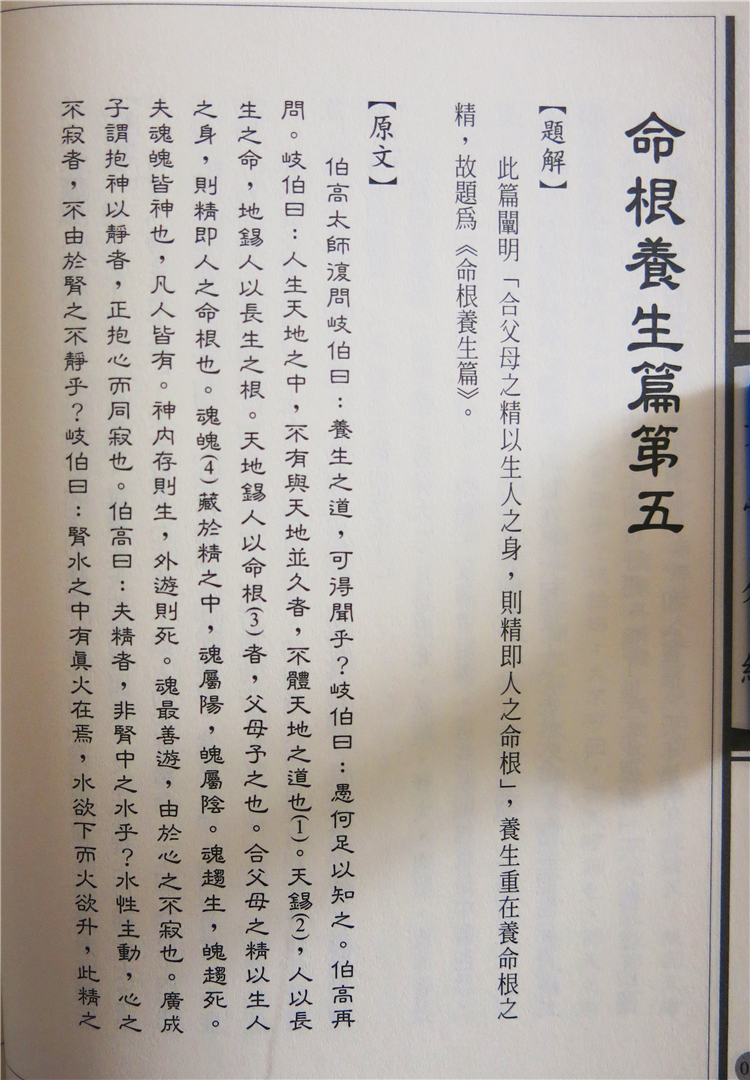 命根養生篇第五
【題解】
此篇闡明「合父母之精以生人之身，則精即人之命根」，養生重在養命根之
精，故題爲《命根養生篇》。
【原文】
伯高太師復問岐伯曰：養生之道，可得聞乎？岐伯曰：愚何足以知之。伯高再
問。岐伯曰：人生天地之中，不有與天地並久者，不體天地之道也(1)。天錫(2)，人以長
生之命，地錫人以長生之根。天地錫人以命根(3)者，父母予之也。合父母之精以生人
之身，則精即人之命根也。魂魄(4)藏於精之中，魂屬陽，魄屬陰。魂趨生，魄趨死。
夫魂魄皆神也，凡人皆有。神內存則生，外遊則死。魂最善遊，由於心之不寂也。廣成
子謂抱神以靜者，正抱心而同寂也。伯高曰：夫精者，非腎中之水乎？水性主動，心之
不寂者，不由於腎之不靜乎？岐伯曰：腎水之中有眞火在焉，水欲下而火欲升，此精之